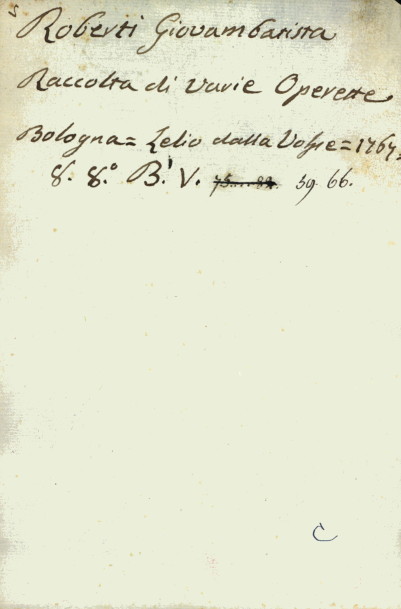 S
Roberti Giovambatista
Raccolta di Varie Operette
Bologna = Lelio dalla Volpe = 1767.
8. 8.° B. V. 59. 66.
C